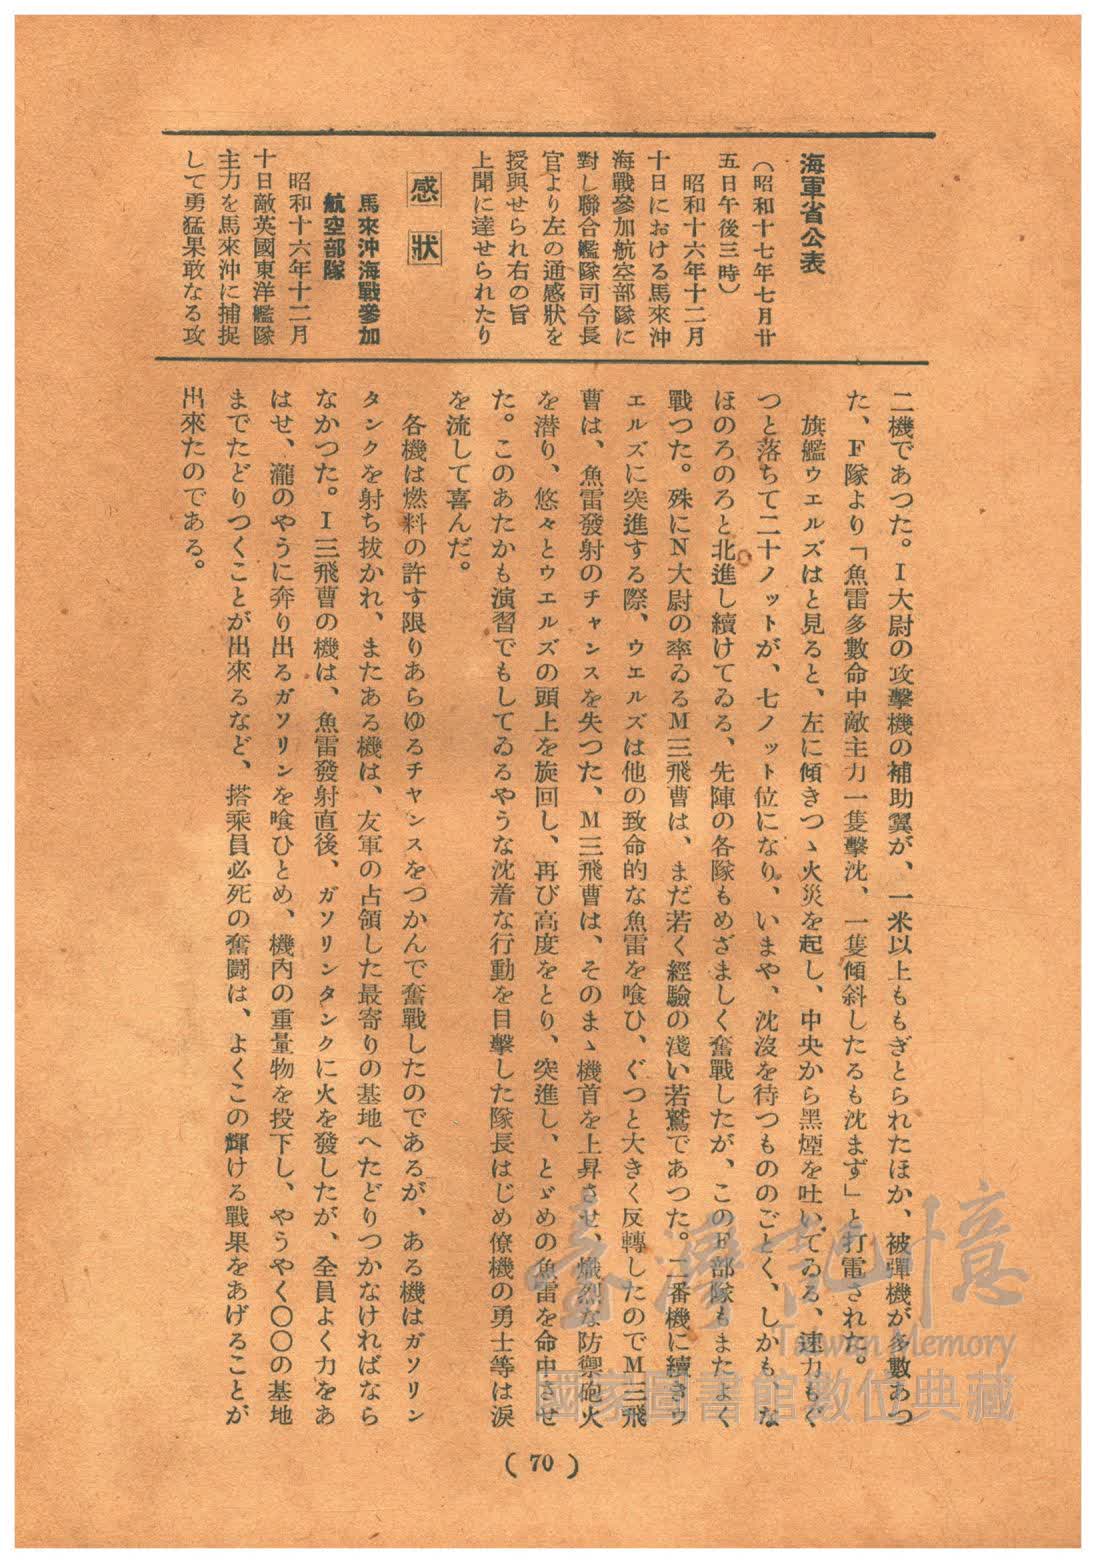 海軍省公表
（昭和十七年七月廿
五日午後三時）
昭和十六年十二月
十日における馬來沖
海戰參加航空部隊に
對し聯合艦隊司令長
官より左の通感狀を
授與せられ右の旨
上聞に達せられたり
感狀
馬來沖海戰參加
航空部隊
昭和十六年十二月
十日敵英國東洋艦隊
主力を馬來沖に捕捉
して勇猛果敢なる攻
二機であつた。Ｉ大尉の攻擊機の補助翼が、一米以上ももぎとられたほか、被彈機が多數あつ
た、Ｆ隊より「魚雷多數命中敵主力一隻擊沈、一隻傾斜したるも沈まず」と打電された。
旗艦ウエルズはと見ると、左に傾きつゝ火災を起し、中央から黑煙を吐いてゐる、速力もぐ
つと落ちて二十ノットが、七ノット位になり、いまや、沈沒を待つもののごとく、しかも、な
ほのろのろと北進し續けてゐる、先陣の各隊もめざましく奮戰したが、このＦ部隊もまたよく
戰つた。殊にＮ大尉の率ゐるＭ三飛曹は、まだ若く經驗の淺い若鷲であつた。二番機に續きウ
エルズに突進する際、ウエルズは他の致命的な魚雷を喰ひ、ぐつと大きく反轉したのでＭ三飛
曹は、魚雷發射のチャンスを失つた、Ｍ三飛曹は、そのまゝ機首を上昇させ、熾烈な防禦砲火
を潜り、悠々とウエルズの頭上を旋回し、再び高度をとり、突進し、とゞめの魚雷を命中させ
た。このあたかも演習でもしてゐるやうな沈着な行動を目擊した隊長はじめ僚機の勇士等は淚
を流して喜んだ。
各機は燃料の許す限りあらゆるチャンスをつかんで奮戰したのであるが、ある機はガソリン
タンクを射ち拔かれ、またある機は、友軍の占領した最寄りの基地へたどりつかなければなら
なかつた。Ｉ三飛曹の機は、魚雷發射直後、ガソリンタンクに火を發したが、全員よく力をあ
はせ、瀧のやうに奔り出るガソリンを喰ひとめ、機內の重量物を投下し、やうやく〇〇の基地
までたどりつくことが出來るなど、搭乘員必死の奮鬪は、よくこの輝ける戰果をあげることが
出來たのである。
( 70 )
臺灣記憶
Taiwan Memory
國家圖書館數位典藏